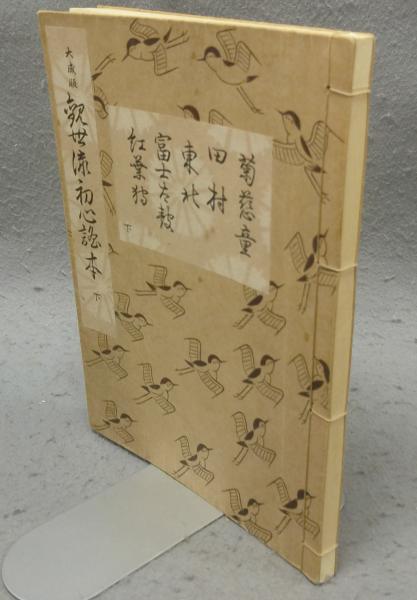 大成版
觀世流初心謠本 下
菊慈童
田村
東北
富士太鼓
紅葉狩
下